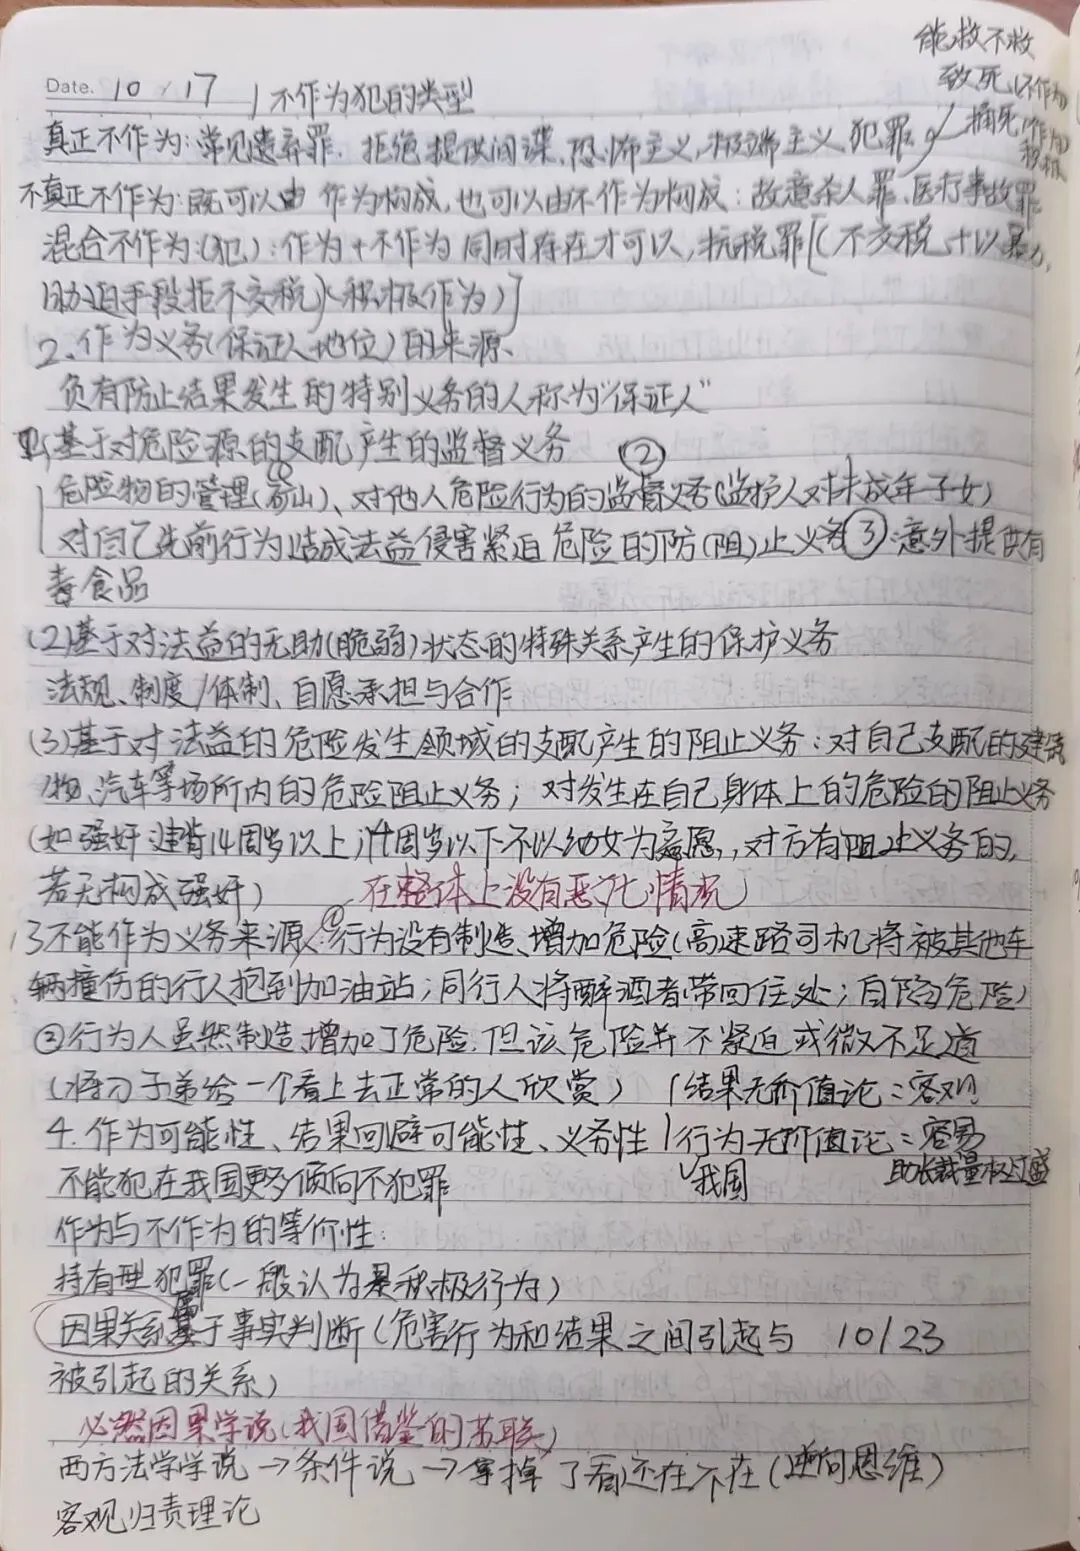 能救不救
致死(不作为)
捅死(作为)
积极
Date. 10 / 17 1不作为犯的类型
真正不作为:常见遗弃罪、拒绝提供间谍、恐怖主义、极端主义犯罪
不真正不作为:既可以由作为构成,也可以由不作为构成:故意杀人罪、医疗事故罪
混合不作为:(犯):作为+不作为同时存在才可以,抗税罪[(不交税+以暴力,
胁迫手段拒不交税)(积极作为)]
2.作为义务(保证人地位)的来源、
负有防止结果发生的特别义务的人称为“保证人”
基于对危险源的支配产生的监督义务
危险物的管理(矿山)、对他人危险行为的监督义务(监护人对未成年子女) ②
对自己先前行为造成法益侵害紧迫危险的防(阻)止义务③:意外提供有
毒食品
(2)基于对法益的无助(脆弱)状态的特殊关系产生的保护义务
法规、制度/体制、自愿承担与合作
(3)基于对法益的危险发生领域的支配产生的阻止义务:对自己支配的建筑
物、汽车等场所内的危险阻止义务;对发生在自己身体上的危险的阻止义务
(如强奸违背14周岁以上,14周岁以下不以幼女为意愿,,对方有阻止义务的,
若无构成强奸) 在整体上没有恶化情况)
3不能作为义务来源:①行为没有制造、增加危险(高速路司机将被其他车
辆撞伤的行人抱到加油站;同行人将醉酒者带回住处;自陷危险)
②行为人虽然制造、增加了危险,但该危险并不紧迫或微不足道
(将刀子递给一个看上去正常的人欣赏) 结果无价值论:客观
4.作为可能性、结果回避可能性、义务性 行为无价值论:容易
不能犯在我国更多倾向不犯罪 我国 助长裁量权过盛
作为与不作为的等价性:
持有型犯罪(一般认为是积极行为)
因果关系属于事实判断(危害行为和结果之间引起与 10/23
被引起的关系)
必然因果学说(我国借鉴的苏联)
西方法学学说→条件说→拿掉了看还在不在(逆向思维)
客观归责理论